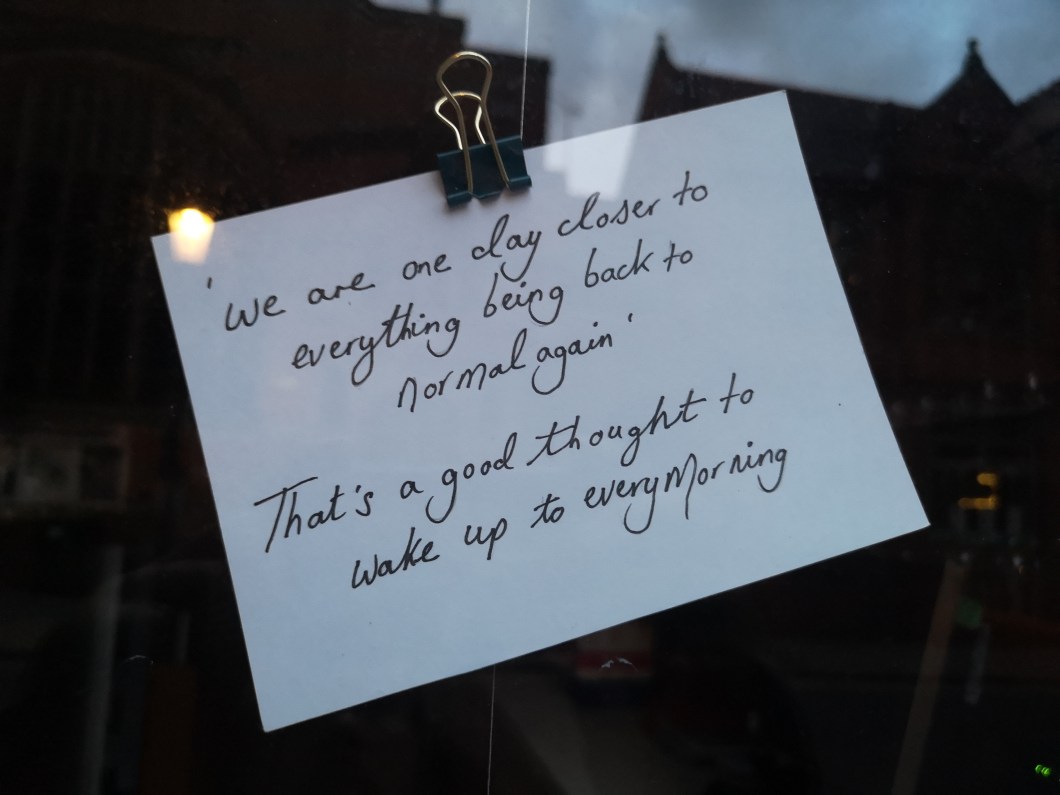 'We are one day closer to
everything being back to
normal again'
That's a good thought to
wake up to every Morning